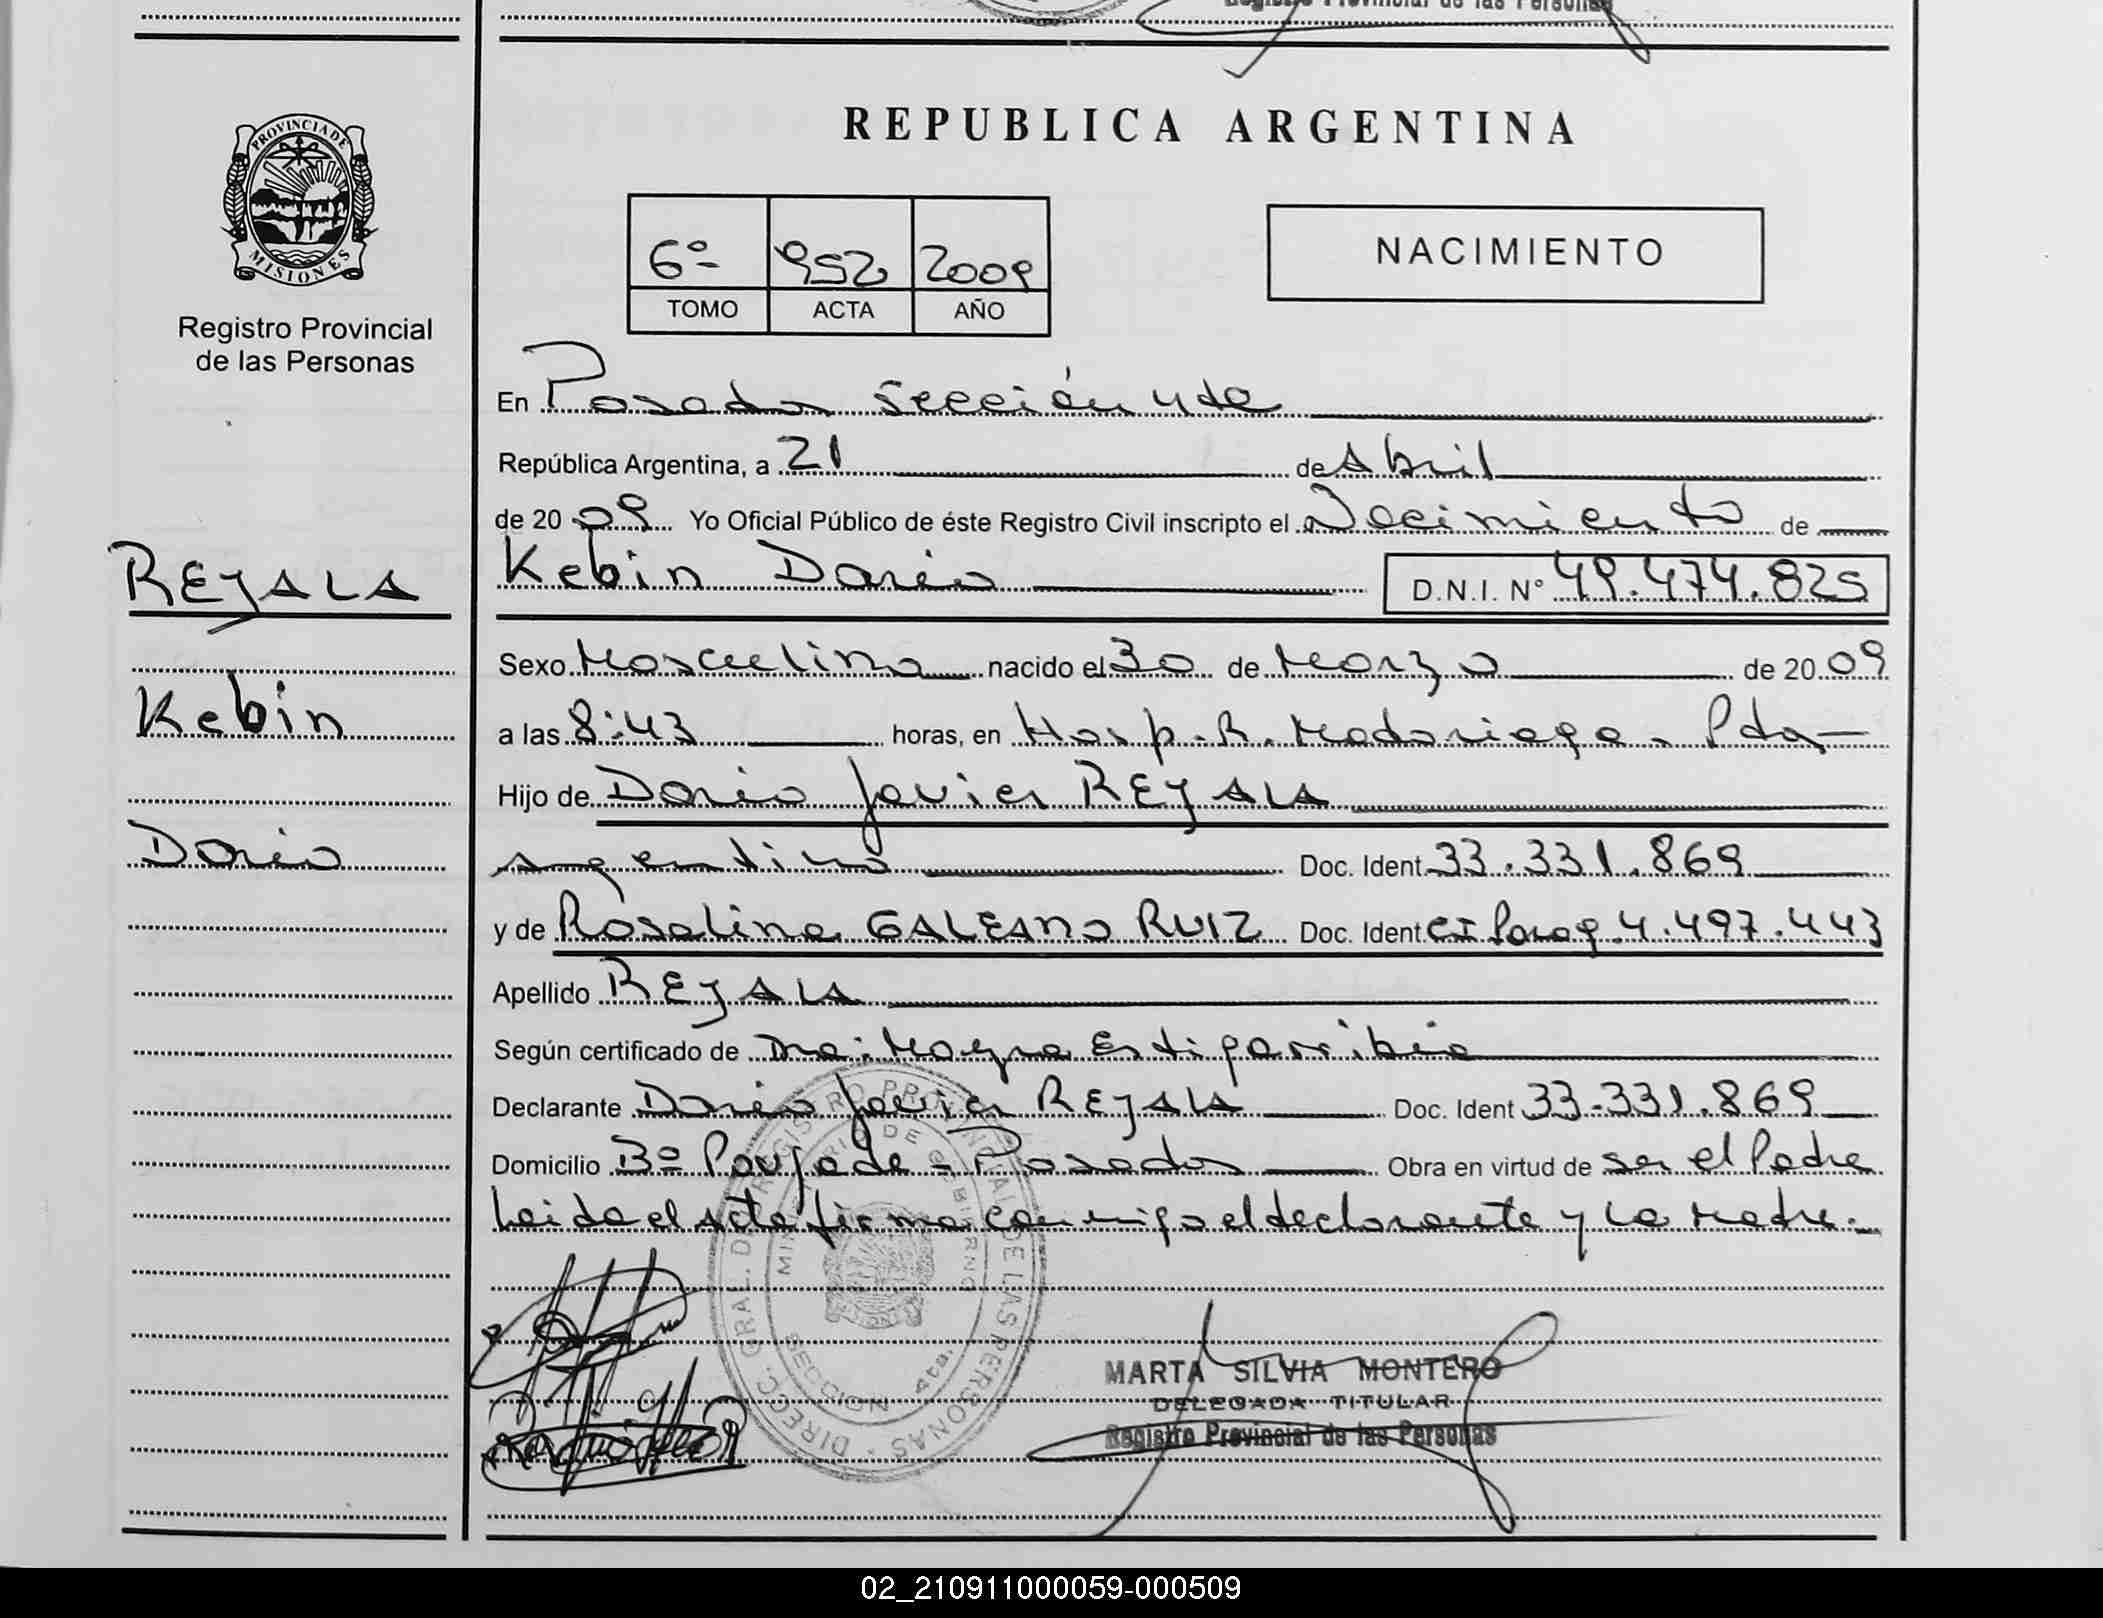 Registro Provincial de las Personas
REPUBLICA ARGENTINA
PROVINCIA DE MISIONES
6º 952 2009
TOMO ACTA AÑO
NACIMIENTO
Registro Provincial
de las Personas
En Posadas Sección 4ta
República Argentina, a 21 de Abril
de 20 09 Yo Oficial Público de éste Registro Civil inscripto el Nacimiento de
REJALA
Kebin Dario D.N.I. Nº 49.474.825
Sexo Masculino nacido el 30 de Marzo de 20 09
Kebin
a las 8:43 horas, en Hosp. R. Madariaga. Pdas
Hijo de Dario Javier REJALA
Dario
argentino Doc. Ident. 33.331.869
y de Rosalina GALEANO RUIZ Doc. Ident. CI Parag. 4.497.443
Apellido REJALA
Según certificado de Dra. Mayra Estigarribia
Declarante Dario Javier REJALA Doc. Ident 33.331.869
Domicilio Bº Poujade - Posadas Obra en virtud de ser el Padre
Leida el acta firma conmigo el declarante y la Madre.-
DIRECC. GRAL. DEL REGISTRO PROVINCIAL DE LAS PERSONAS
MINISTERIO DE GOBIERNO
SECCION 4ta.
MARTA SILVIA MONTERO
DELEGADA TITULAR
Registro Provincial de las Personas
02_210911000059-000509